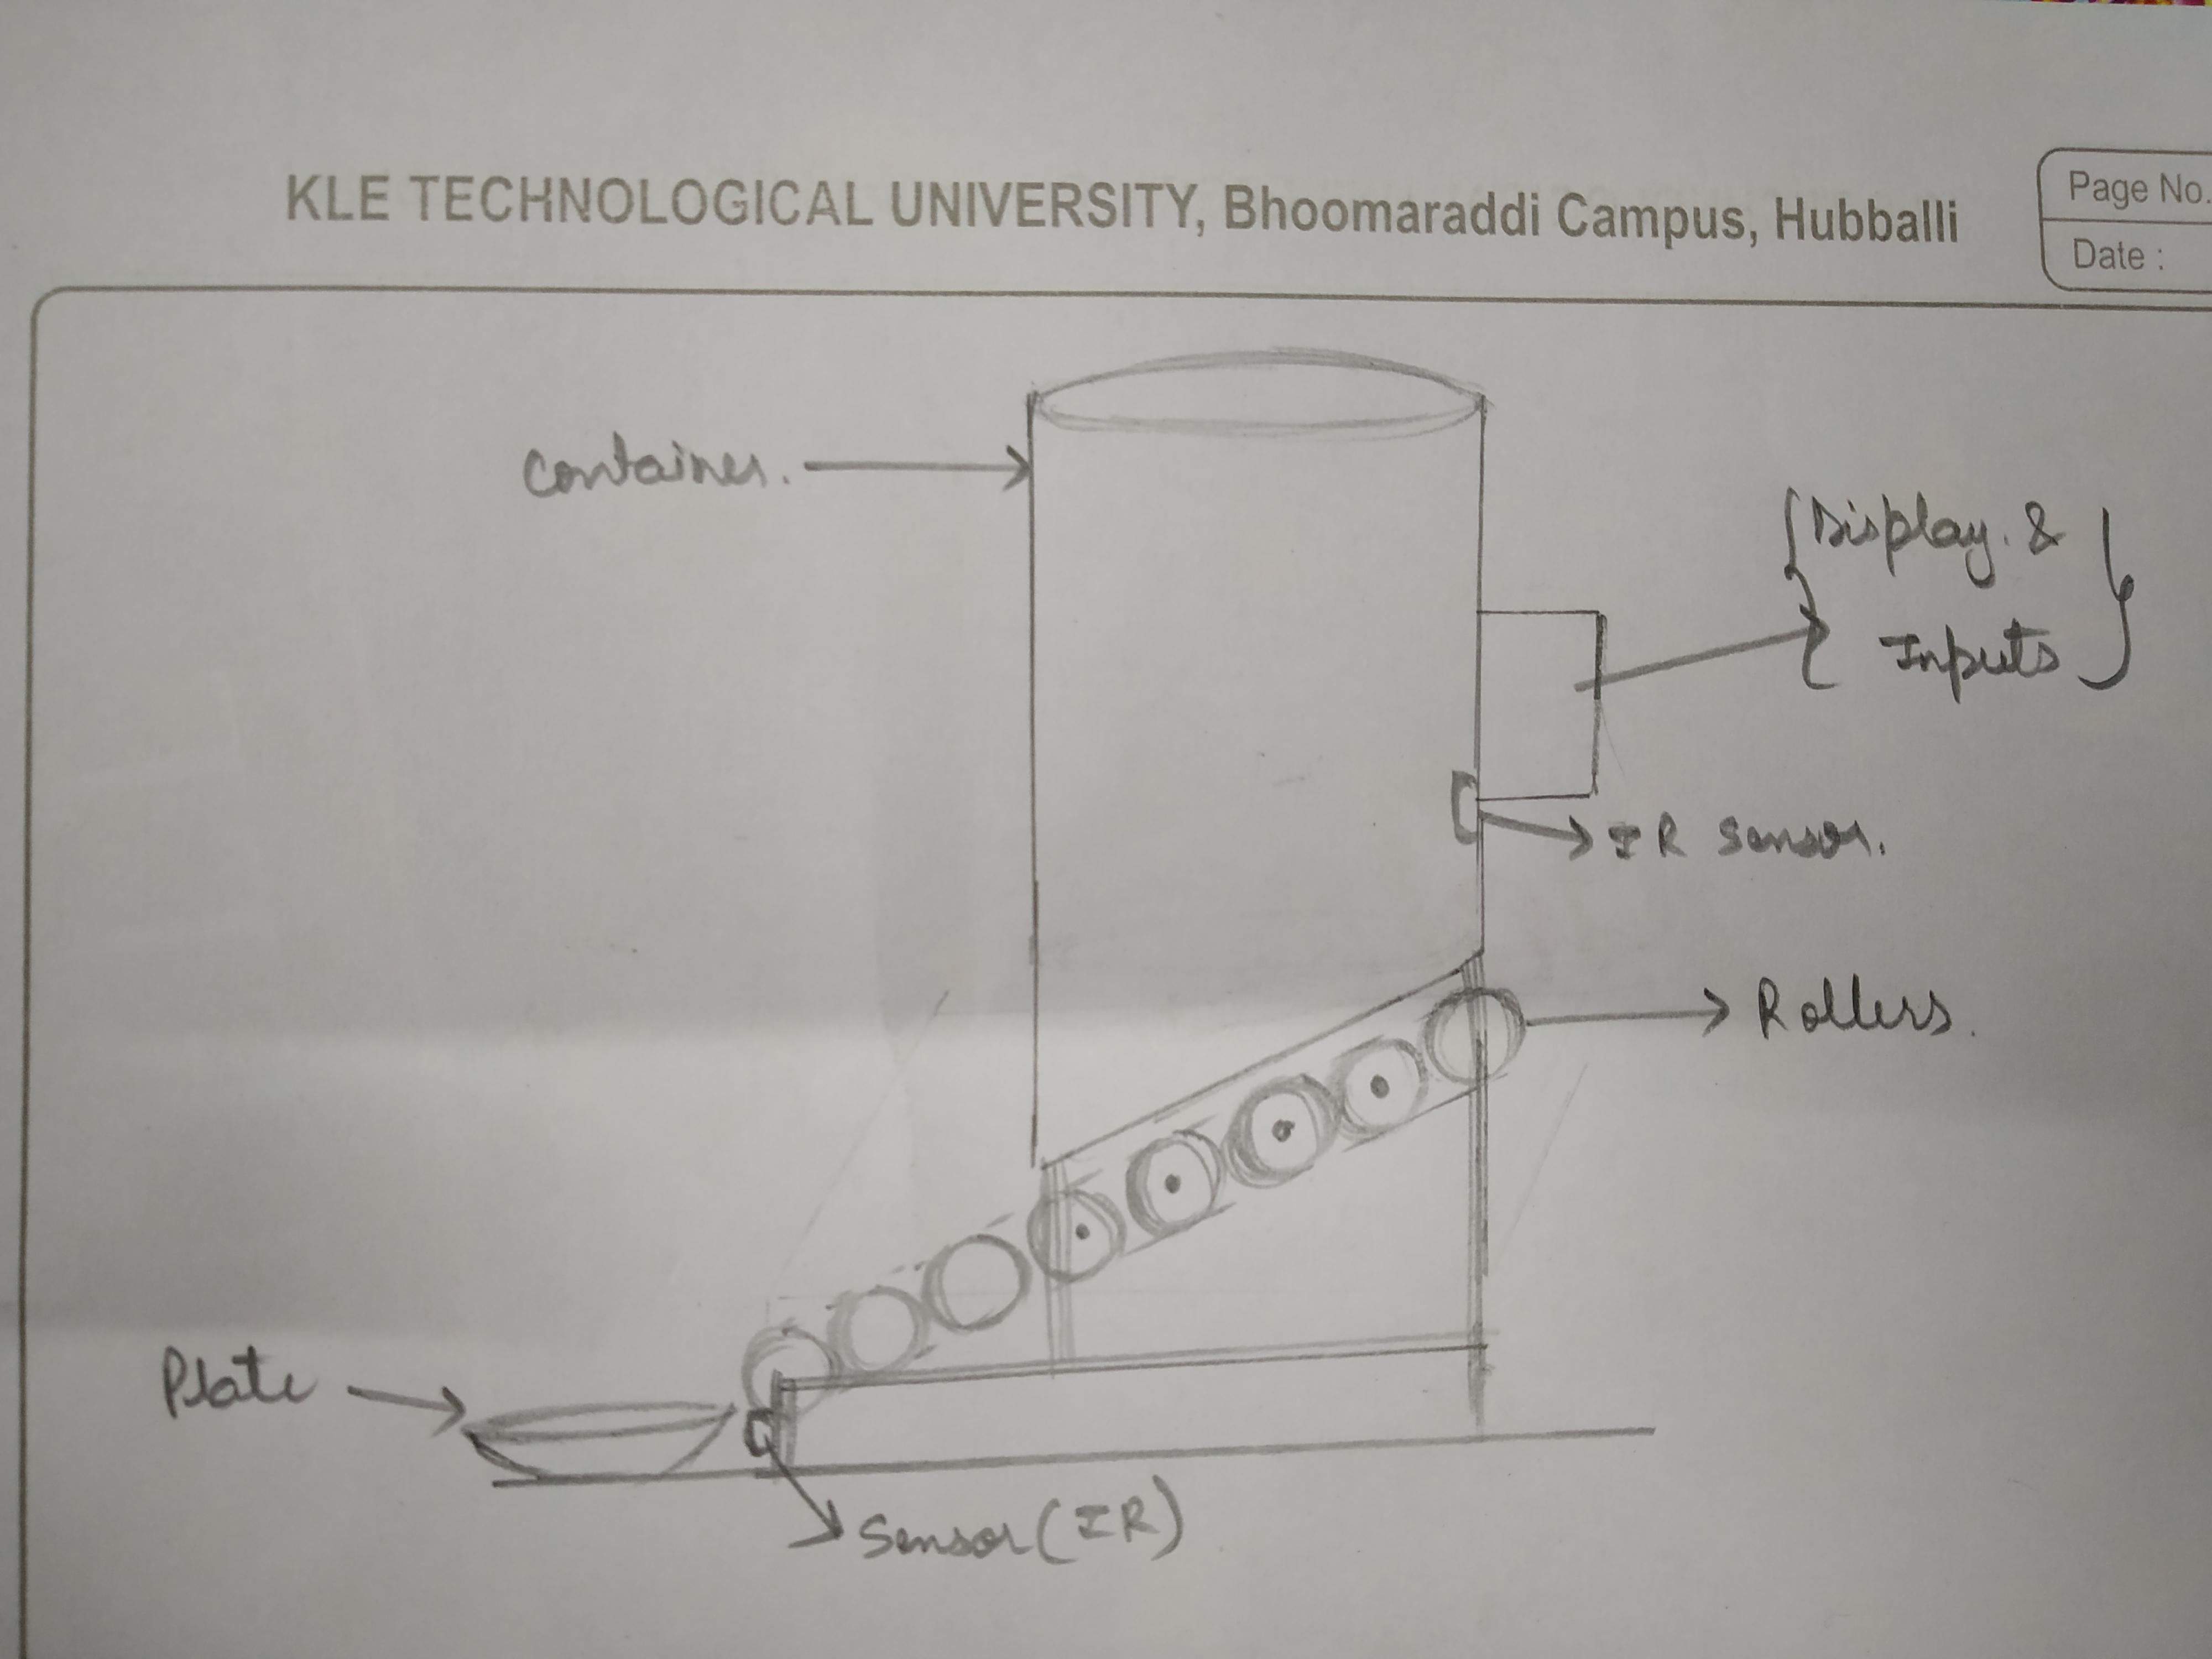 KLE TECHNOLOGICAL UNIVERSITY, Bhoomaraddi Campus, Hubballi
Page No.
Date :
Container.
Display. &
Inputs
IR Sensor.
Rollers.
Plate
Sensor (IR)